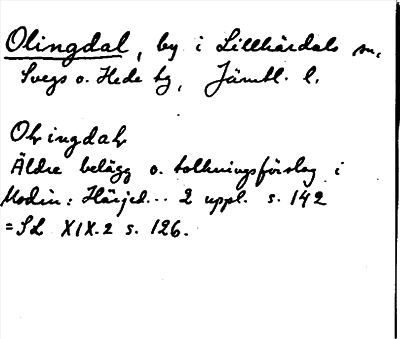 Olingdal, by i Lillhärdals sn,
Svegs o. Hede tg, Jämtl. l.
Äldre belägg o. tolkningsförslag i
Modin: Härjed... 2 uppl. s. 142
=SL XIX.2 s. 126.